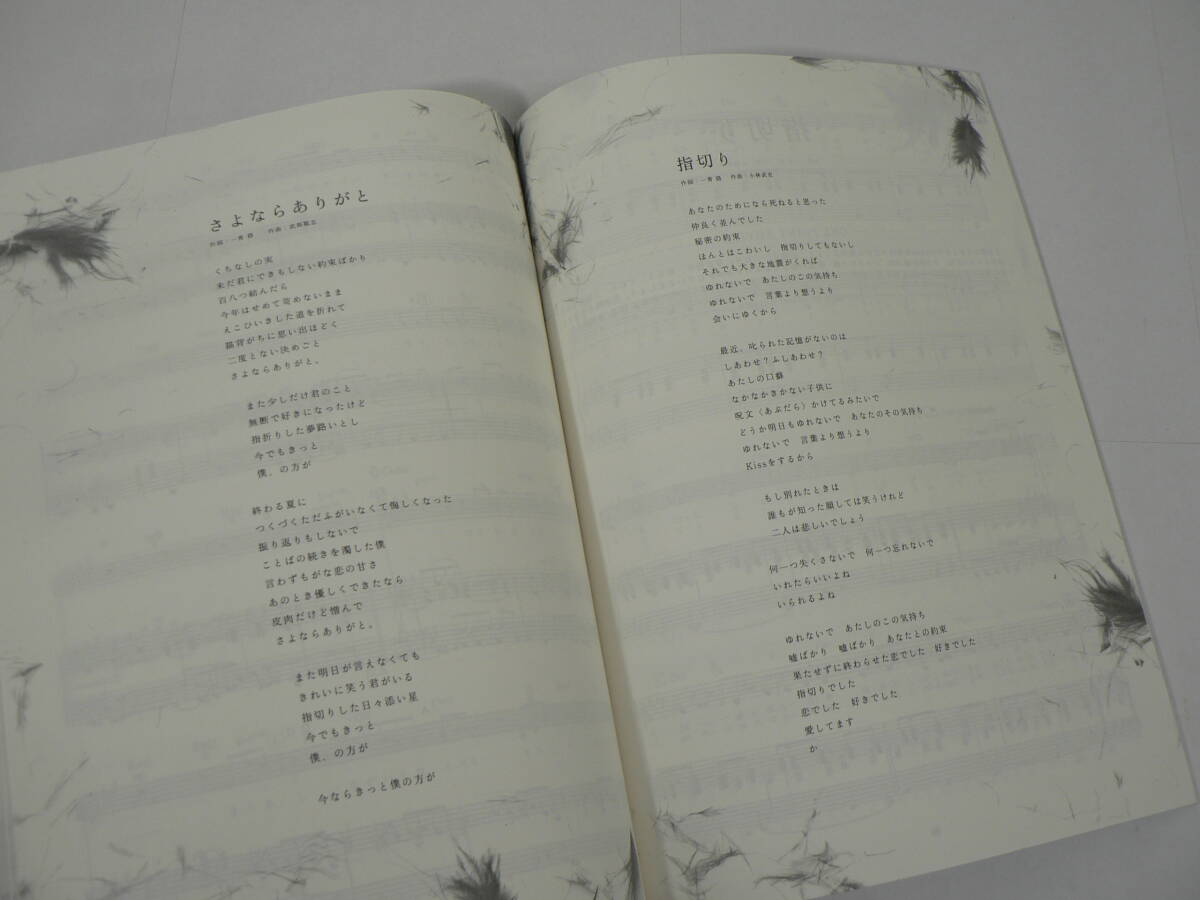 さよならありがと
作詞:一青 窈 作曲:武部聡志
くちなしの実
未だ君にできもしない約束ばかり
百八つ結んだら
今年はせめて咎めないまま
えこひいきした道を折れて
猫背がちに思い出ほどく
二度とない決めごと
さよならありがと。
また少しだけ君のこと
無断で好きになったけど
指折りした夢路いとし
今でもきっと
僕、の方が
終わる夏に
つくづくただふがいなくて悔しくなった
振り返りもしないで
ことばの続きを濁した僕
言わずもがな恋の甘さ
あのとき優しくできたなら
皮肉だけど憎んで
さよならありがと。
また明日が言えなくても
きれいに笑う君がいる
指切りした日々添い星
今でもきっと
僕、の方が
今ならきっと僕の方が
指切り
作詞:一青 窈 作曲:小林武史
あなたのためになら死ねると思った
仲良く並んでした
秘密の約束
ほんとはこわいし 指切りしてもないし
それでも大きな地震がくれば
ゆれないで あたしのこの気持ち
ゆれないで 言葉より想うより
会いにゆくから
最近、叱られた記憶がないのは
しあわせ?ふしあわせ?
あたしの口癖
なかなかきかない子供に
呪文〈あぶだら〉かけてるみたいで
どうか明日もゆれないで あなたのその気持ち
ゆれないで 言葉より想うより
Kissをするから
もし別れたときは
誰もが知った顔しては笑うけれど
二人は悲しいでしょう
何一つ失くさないで 何一つ忘れないで
いれたらいいよね
いられるよね
ゆれないで あたしのこの気持ち
嘘ばかり 嘘ばかり あなたとの約束
果たせずに終わらせた恋でした 好きでした
指切りでした
恋でした 好きでした
愛してます
か